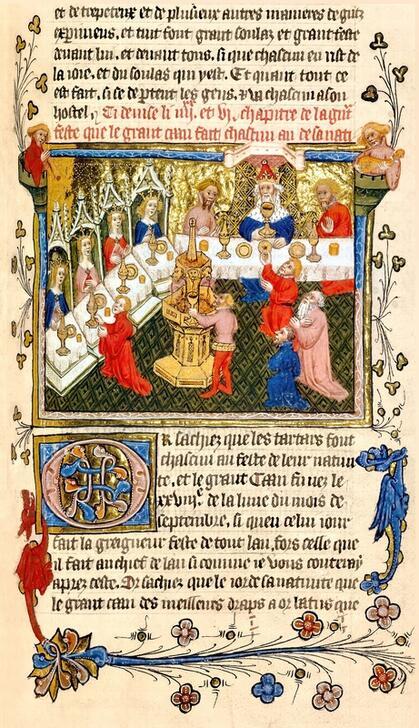 et de trepeteux et de plusieux autres manieres de gens
expineus, et tuit font grant soulaz et grant feste
deuant lui, et deuant tous, si que chascun en rist de
la ioie, et du soulas qui y est. Et quant tout ce
est fait, si se deptent les gens. et va chascun a son
hostel, Ci deuise li iiii. et vi. chapitre de la gnt
feste que le grant caan fait chascun an de sa nati
Or sachiez que les tartars font
chascun an feste de leur natiui
te. et le grant Caan fu nez le
xxviii.e de la lune du mois de
septembre, si quen celui iour
fait la greigneur feste de tout lan, fors celle que
il fait au chief de lan si comme ie vous conteray
aprez ceste. Or sachiez que le ior de sa natiuite que
le grant caan des meilleurs draps a or batus que